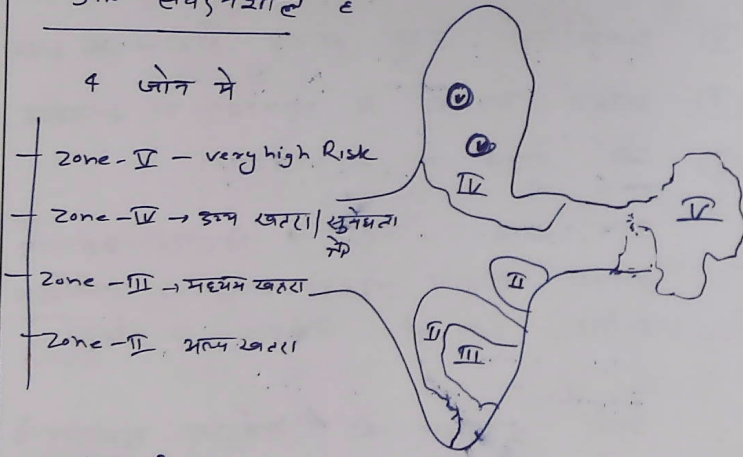 4 जोन मे
Zone-V - very high Risk
Zone-IV → उच्च खतरा /
Zone-III → मध्यम खतरा
Zone-II अल्प खतरा
V
V
IV
V
II
II
III